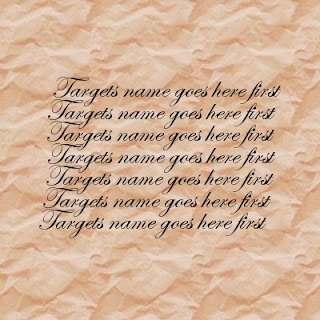 Targets name goes here first
Targets name goes here first
Targets name goes here first
Targets name goes here first
Targets name goes here first
Targets name goes here first
Targets name goes here first